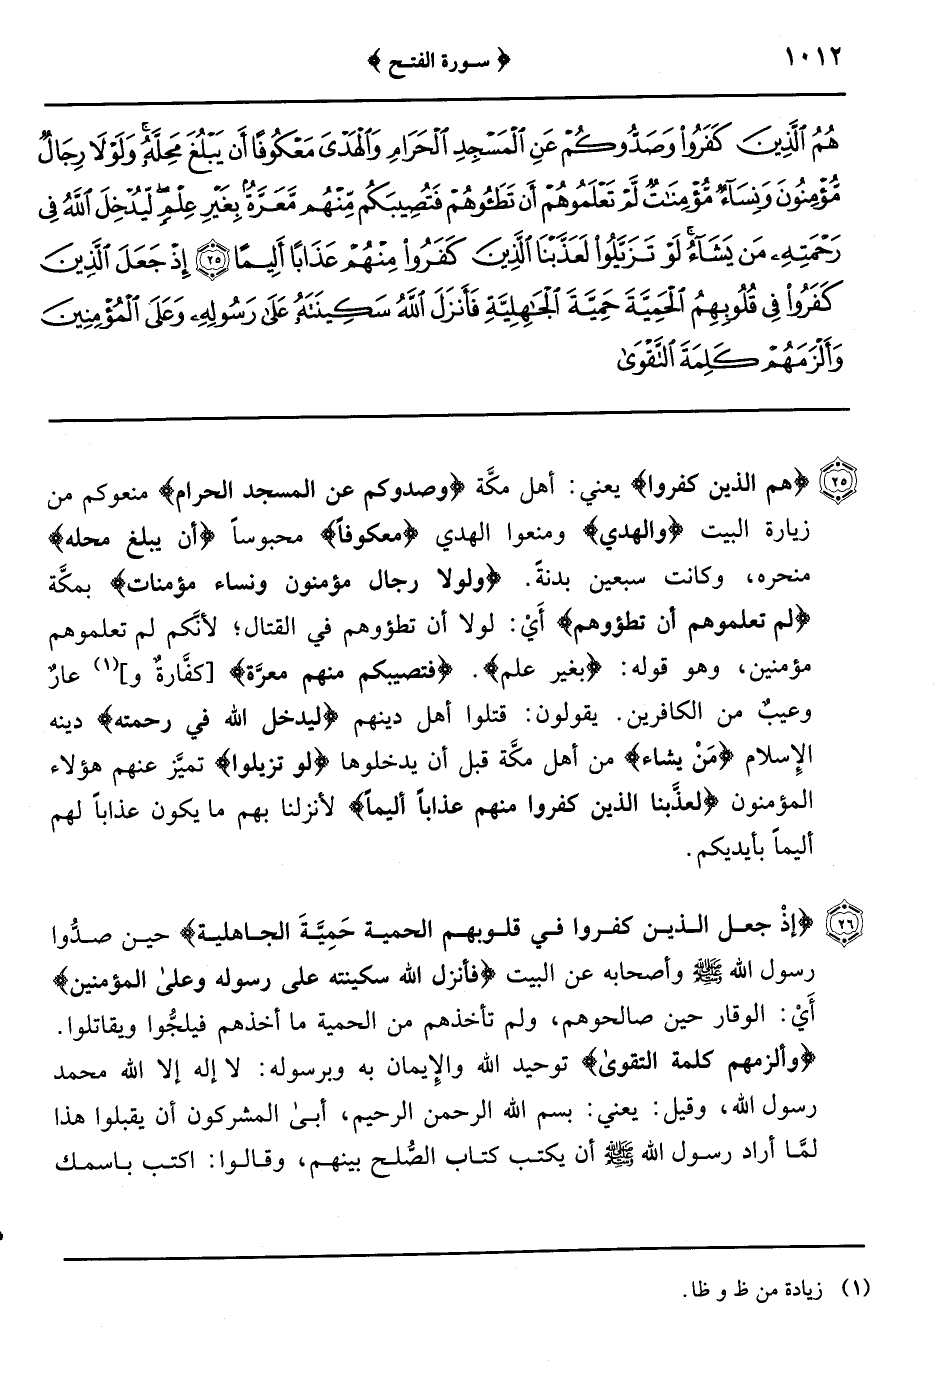 ١٠١٢
﴿ سورة الفتح ﴾
هُمُ ٱلَّذِينَ كَفَرُوا۟ وَصَدُّوكُمْ عَنِ ٱلْمَسْجِدِ ٱلْحَرَامِ وَٱلْهَدْىَ مَعْكُوفًا أَن يَبْلُغَ مَحِلَّهُۥۚ وَلَوْلَا رِجَالٌ
مُّؤْمِنُونَ وَنِسَآءٌ مُّؤْمِنَٰتٌ لَّمْ تَعْلَمُوهُمْ أَن تَطَـُٔوهُمْ فَتُصِيبَكُم مِّنْهُم مَّعَرَّةٌۢ بِغَيْرِ عِلْمٍۖ لِّيُدْخِلَ ٱللَّهُ فِى
رَحْمَتِهِۦ مَن يَشَآءُۚ لَوْ تَزَيَّلُوا۟ لَعَذَّبْنَا ٱلَّذِينَ كَفَرُوا۟ مِنْهُمْ عَذَابًا أَلِيمًا ٢٥ إِذْ جَعَلَ ٱلَّذِينَ
كَفَرُوا۟ فِى قُلُوبِهِمُ ٱلْحَمِيَّةَ حَمِيَّةَ ٱلْجَٰهِلِيَّةِ فَأَنزَلَ ٱللَّهُ سَكِينَتَهُۥ عَلَىٰ رَسُولِهِۦ وَعَلَى ٱلْمُؤْمِنِينَ
وَأَلْزَمَهُمْ كَلِمَةَ ٱلتَّقْوَىٰ
٢٥ ﴿هم الذين كفروا﴾ يعني: أهل مكَّة ﴿وصدوكم عن المسجد الحرام﴾ منعوكم من
زيارة البيت ﴿والهدي﴾ ومنعوا الهدي ﴿معكوفاً﴾ محبوساً ﴿أن يبلغ محله﴾
منحره، وكانت سبعين بدنةً. ﴿ولولا رجال مؤمنون ونساء مؤمنات﴾ بمكَّة
﴿لم تعلموهم أن تطؤوهم﴾ أَيْ: لولا أن تطؤوهم في القتال؛ لأنَّكم لم تعلموهم
مؤمنين، وهو قوله: ﴿بغير علم﴾. ﴿فتصيبكم منهم معرَّة﴾ [كفَّارةٌ و](١) عارٌ
وعيبٌ من الكافرين. يقولون: قتلوا أهل دينهم ﴿ليدخل الله في رحمته﴾ دينه
الإِسلام ﴿مَنْ يشاء﴾ من أهل مكَّة قبل أن يدخلوها ﴿لو تزيلوا﴾ تميَّز عنهم هؤلاء
المؤمنون ﴿لعذَّبنا الذين كفروا منهم عذاباً أليماً﴾ لأنزلنا بهم ما يكون عذاباً لهم
أليماً بأيديكم.
٢٦ ﴿إذْ جعل الذين كفروا في قلوبهم الحمية حَمِيَّةَ الجاهلية﴾ حين صدُّوا
رسول الله ﷺ وأصحابه عن البيت ﴿فأنزل الله سكينته على رسوله وعلىٰ المؤمنين﴾
أَيْ: الوقار حين صالحوهم، ولم تأخذهم من الحمية ما أخذهم فيلجُّوا ويقاتلوا.
﴿وألزمهم كلمة التقوىٰ﴾ توحيد الله والإِيمان به وبرسوله: لا إله إلا الله محمد
رسول الله، وقيل: يعني: بسم الله الرحمن الرحيم، أبىٰ المشركون أن يقبلوا هذا
لمَّا أراد رسول الله ﷺ أن يكتب كتاب الصُّلح بينهم، وقالوا: اكتب باسمك
(١) زيادة من ظ و ظا.